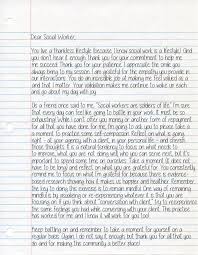 Dear Social Worker,
You live a thankless lifestyle (because I know social work is a lifestyle) and
you don't hear it enough: thank you for your commitment to help me
succeed. Thank you for your patience. I appreciate the smile you
always bring to my session. I am grateful for the empathy you provide in
our interactions. You do an incredible job at making me feel valued as a
and that I matter. Your validation makes me continue to wake up each
and go about my day with joy.
As a friend once said to me, "Social workers are soldiers of life". I'm sure
that every day can feel like going to battle in your work. It must be so
exhausting. While I can't offer you money or another form of reimbursement
for all that you have done for me, I'm going to ask you to please take a
moment to practice some self-compassion. Reflect on how everything is going
right - at your agency with a client, in your personal life - and dismiss
those thoughts that it is not. Take a moment to laugh, to cry, to dance, to
do what you do, because you are only human and social work can
important to spend some time on ourselves. Take a moment (it does not
have to be long) and reflect on everything you are grateful for, because there is
evidence based research showing it makes us happier and healthier. Remember,
the key to doing this exercise is to remain mindful. One way of remaining
mindful is by visualizing or re-experiencing whatever it is that you are focusing on
If you can't think about "conversation with client", try to re-experience
the same feelings you had while conversing with your client. This practice
has worked for me and I know it will work for you too!
Keep battling on and remember to take a moment for yourself on a
regular basis. Again, I do not say it enough, but thank you for all that you
do and for making this community a better place!